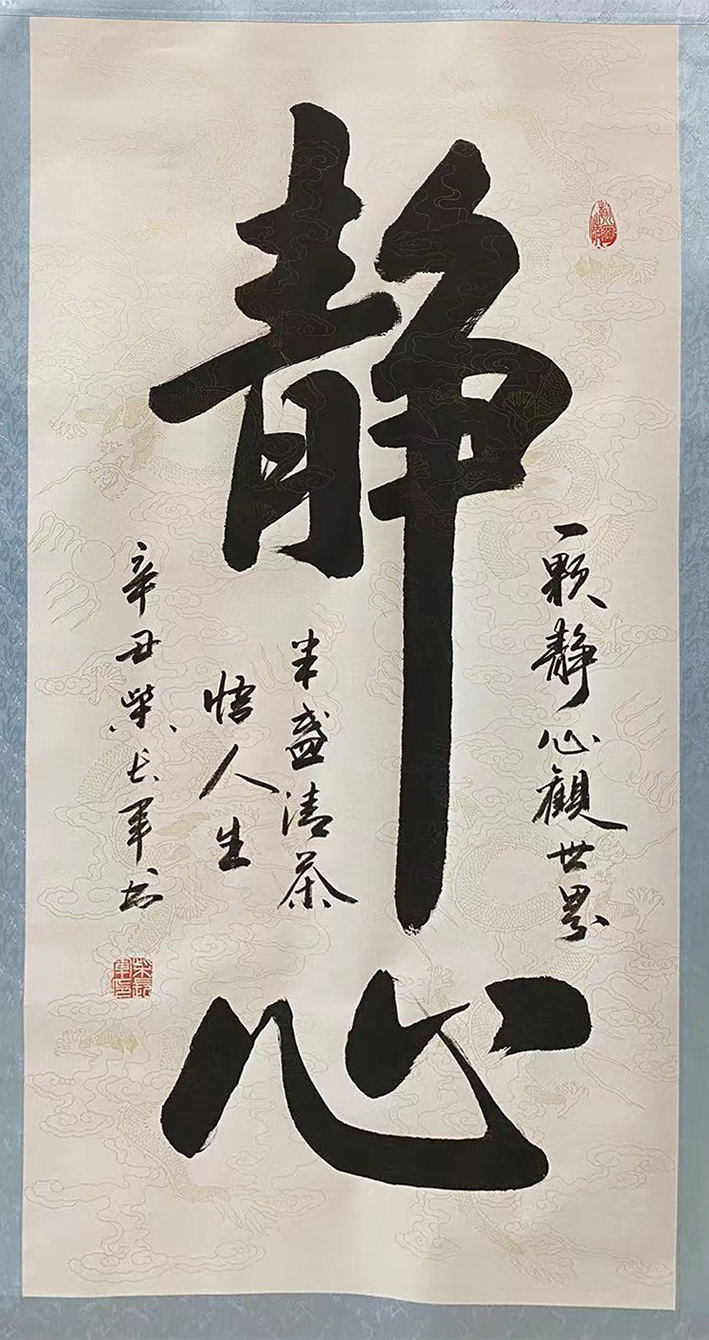 静心
一颗静心觀世界
半盏清茶
悟人生
辛丑柴长军书